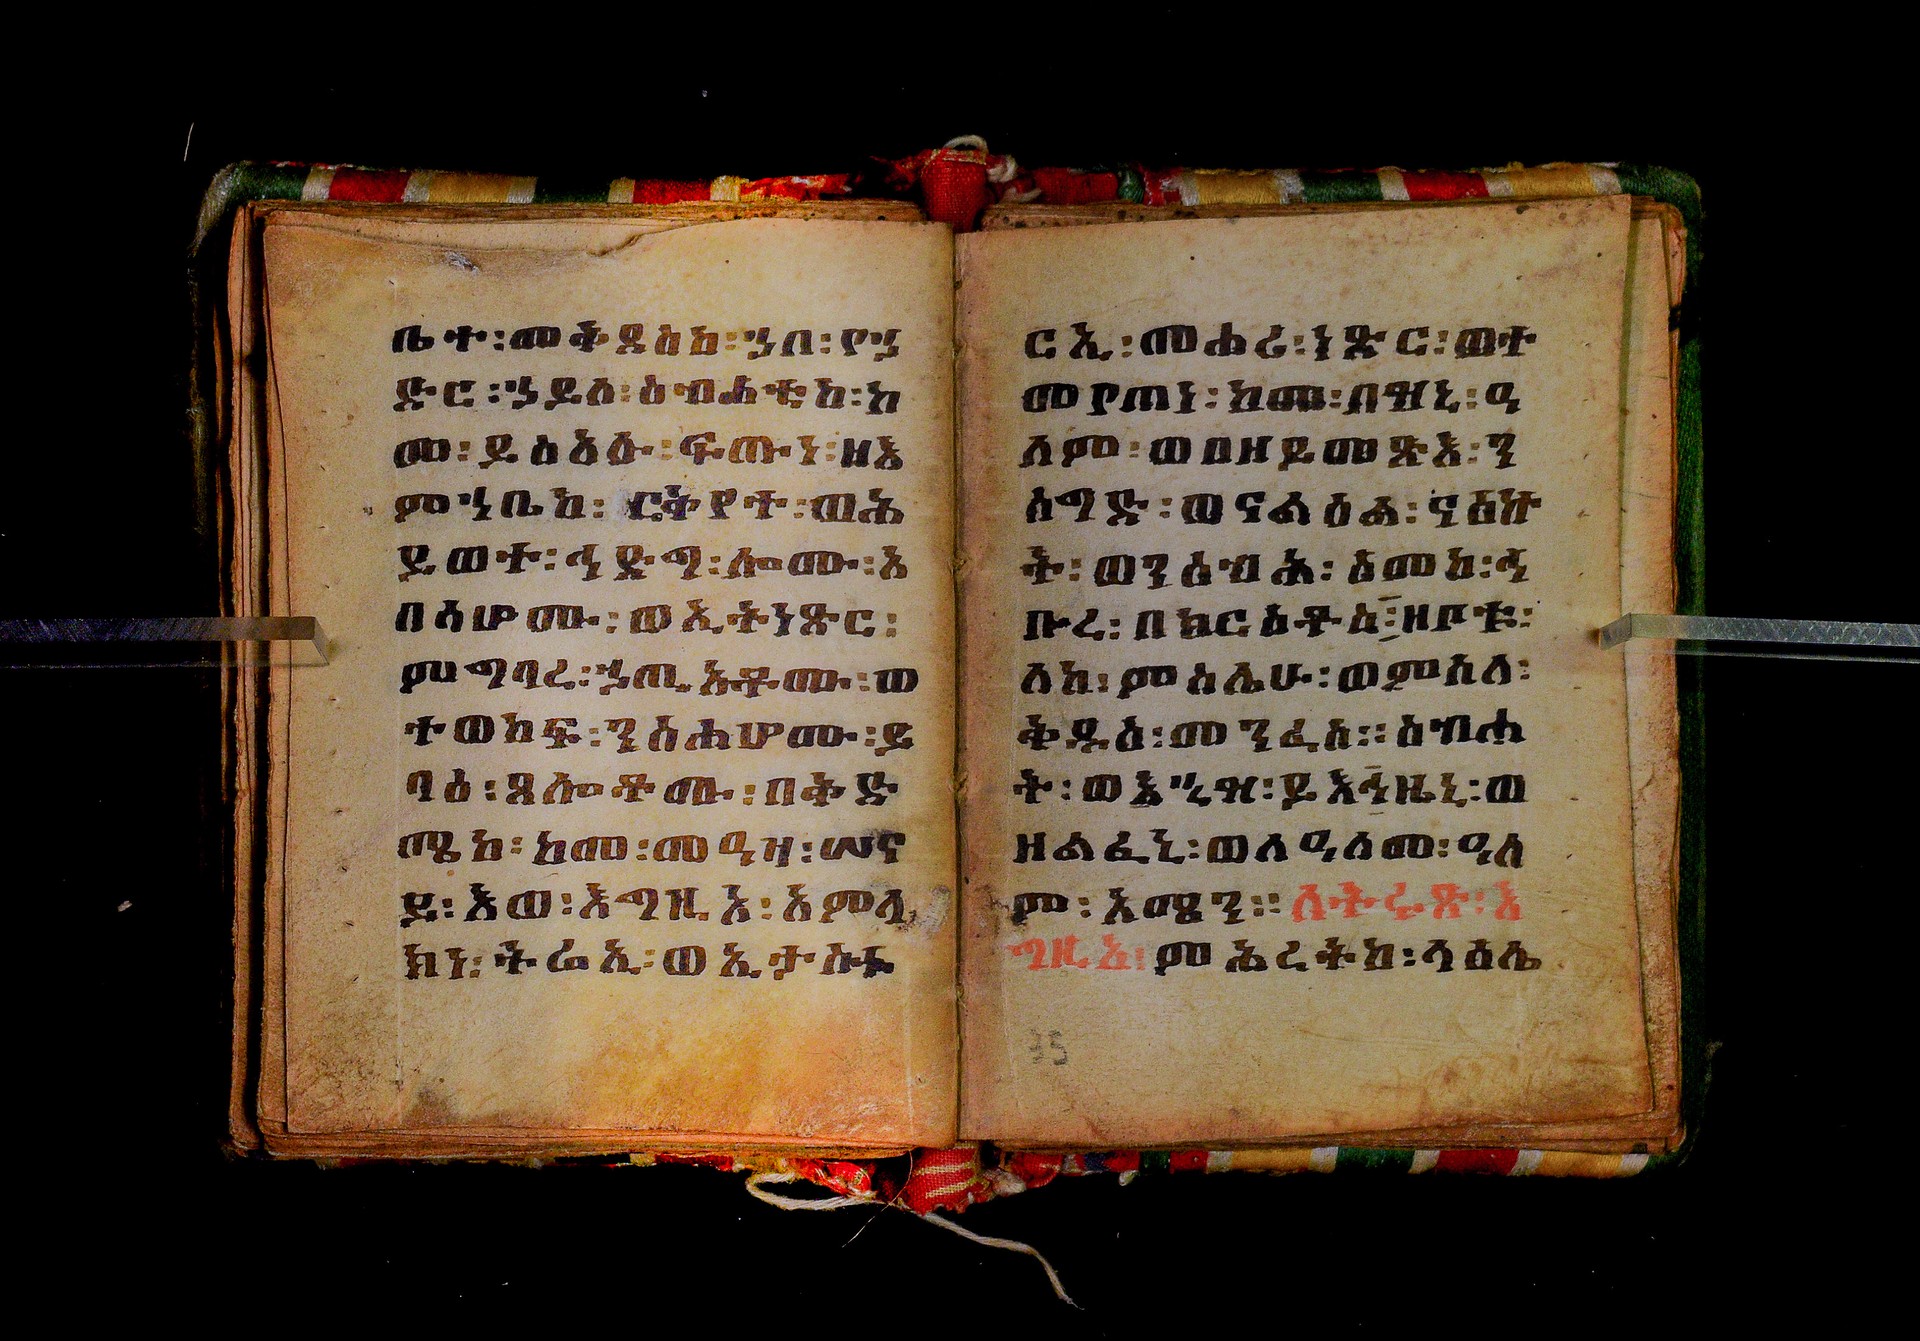 ቤተ፡መቅደስከ፡ኀበ፡የኀ
ድር፡ኀይለ፡ስብሐቲከ፡ከ
መ፡ይስእሉ፡ፍጡነ፡ዘእ
ምኀቤከ፡ ርቅየተ፡ወሕ
ይወተ፡ኅድግ፡ሎሙ፡አ
በሳሆሙ፡ወኢትነጽር፡
ምግባረ፡ኀጢአቶሙ፡ወ
ተወከፍ፡ንስሐሆሙ፡ይ
ባዕ፡ጸሎቶሙ፡በቅድ
ሜከ፡ከመ፡መዓዛ፡ሠና
ይ፡እወ፡እግዚአ፡አምላ
ክነ፡ትሬኢ፡ወኢታስተ
ርኢ፡መሐሪ፡ነጽር፡ወተ
መየጠነ፡ከመ፡በዝኒ፡ዓ
ለም፡ወበዘይመጽእ፡ን
ስግድ፡ወናልዕል፡ናእኩ
ት፡ወንሰብሕ፡ስመከ፡ኅ
ቡረ፡በክርስቶስ፡ዘቦቱ፡
ለከ፡ምስሌሁ፡ወምስለ፡
ቅዱስ፡መንፈስ፡፡ስብሐ
ት፡ወእኂዝ፡ይእኅዜኒ፡ወ
ዘልፈኒ፡ወለዓለመ፡ዓለ
ም፡አሜን፡፡ለትሩጽ፡እ
ግዚአ፡ምሕረትከ፡ላዕሌ